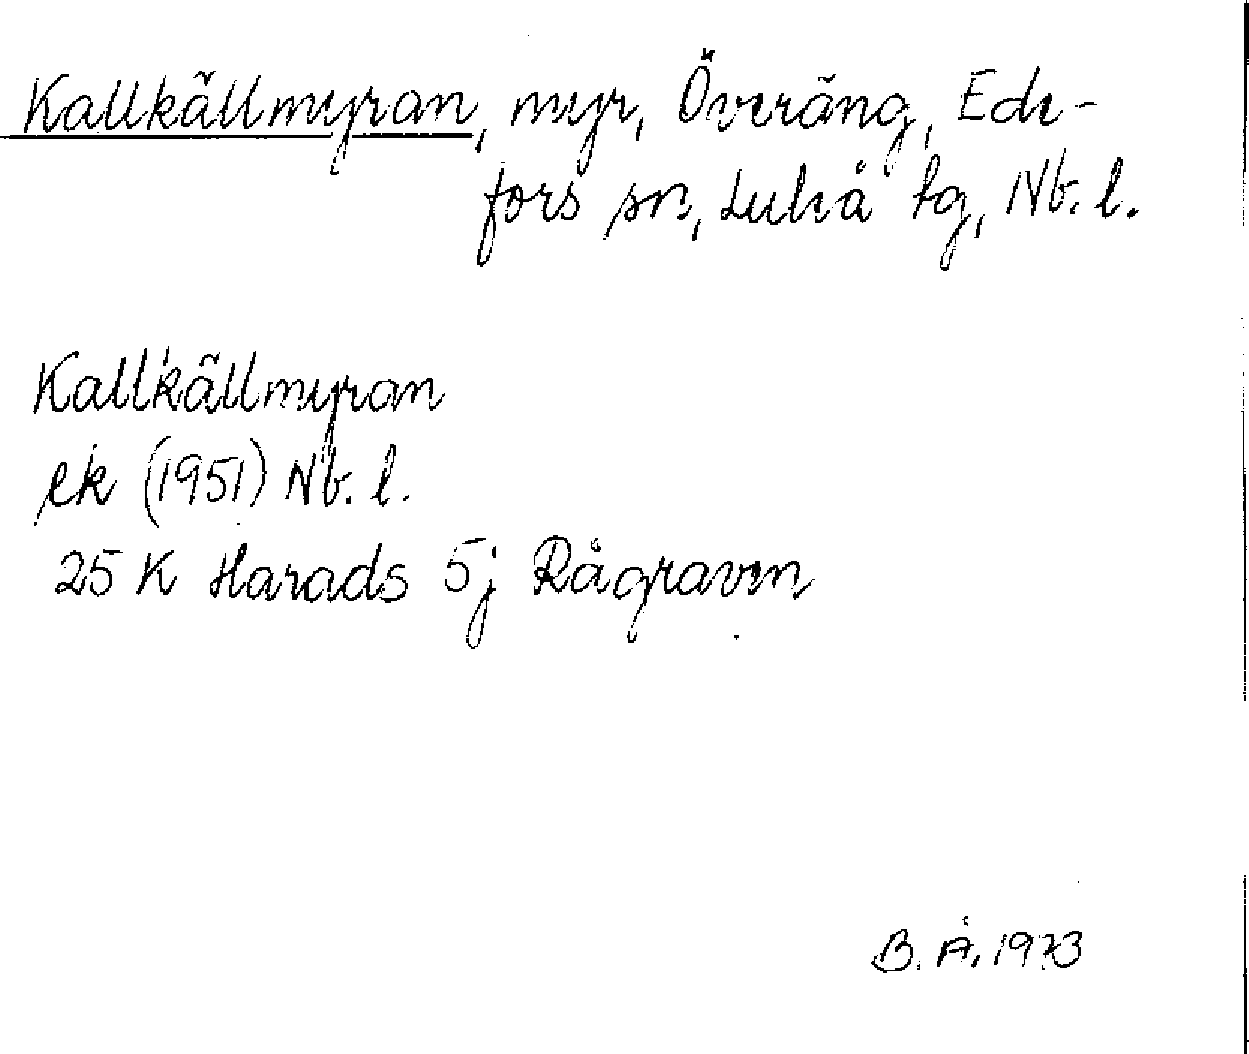 Kallkällmyran, myr, Överäng, Ede-
fors sn, Luleå tg, Nb. l.
Kallkällmyran
ek (1951) Nb. l.
25 K Harads 5j Rågraven
B. Å. 1973